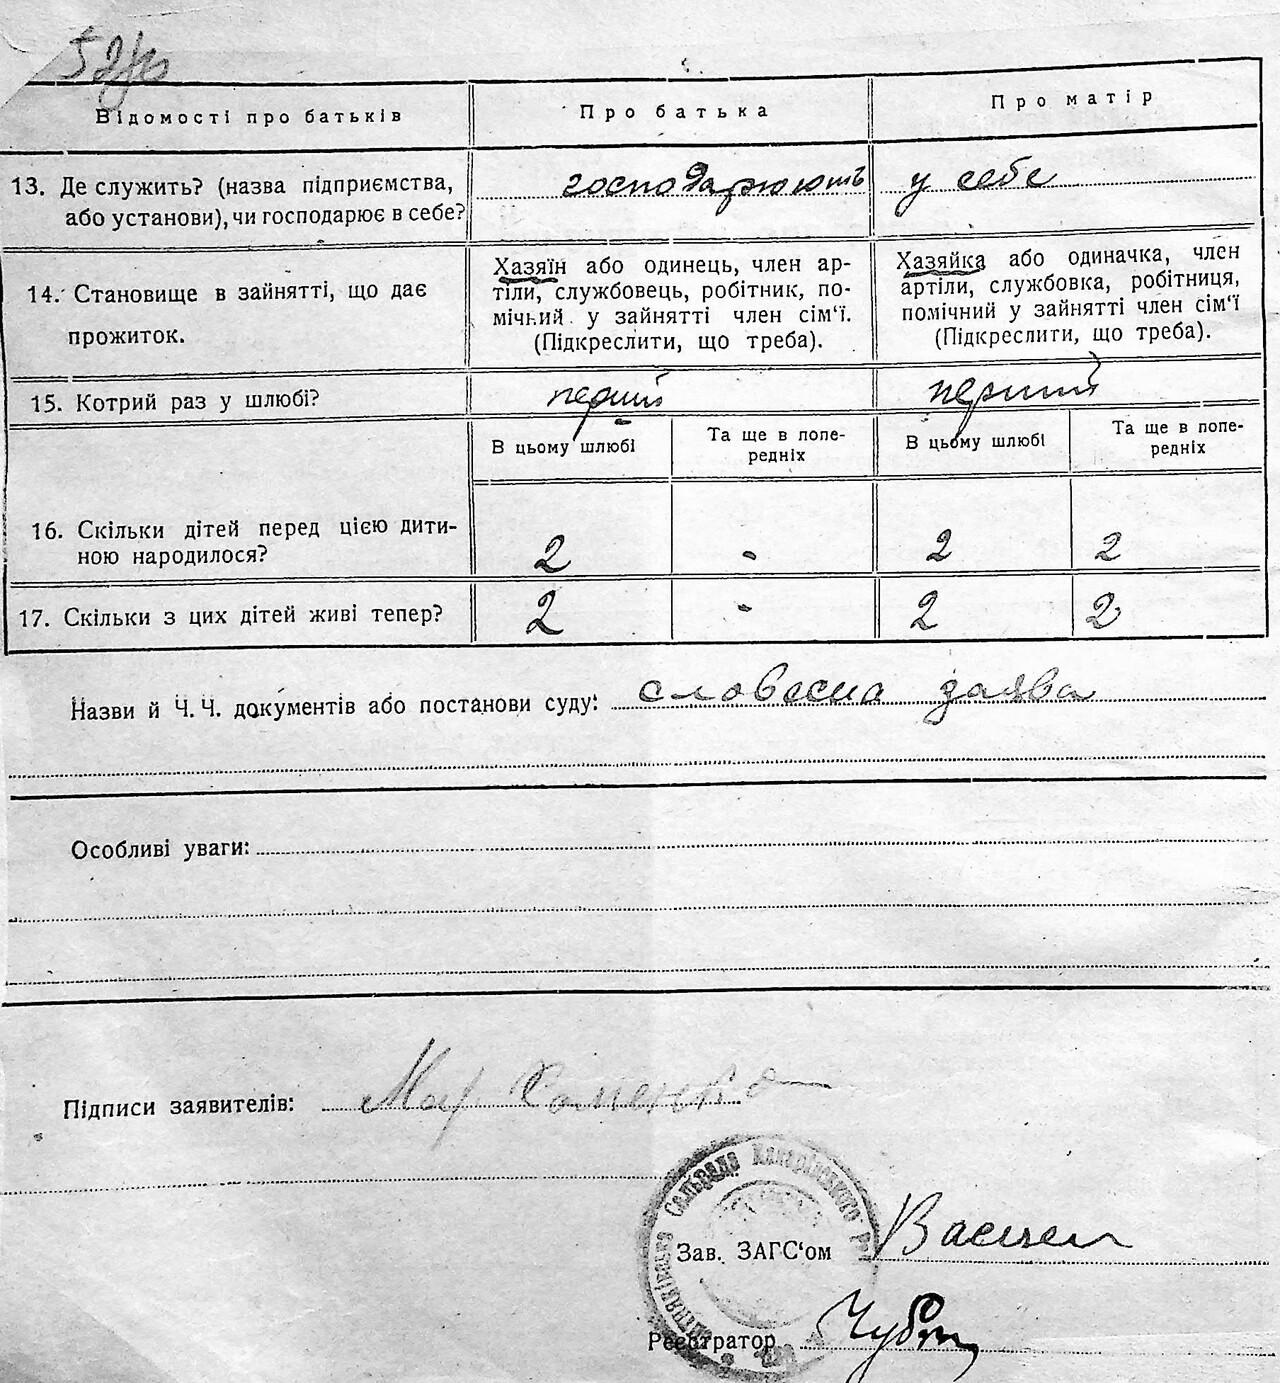 Відомості про батьків
Про батька
Про матір
13. Де служить? (назва підприємства,
або установи), чи господарює в себе?
господарюють
у себе
14. Становище в зайнятті, що дає
прожиток.
Хазяїн або одинець, член ар-
тіли, службовець, робітник, по-
мічний у зайнятті член сім'ї.
(Підкреслити, що треба).
Хазяйка або одиначка, член
артіли, службовка, робітниця,
помічний у зайнятті член сім'ї
(Підкреслити, що треба).
15. Котрий раз у шлюбі?
перший
перший
В цьому шлюбі
Та ще в попе-
редніх
В цьому шлюбі
Та ще в попе-
редніх
16. Скільки дітей перед цією дити-
ною народилося?
2
-
2
2
17. Скільки з цих дітей живі тепер?
2
-
2
2
Назви й Ч.Ч. документів або постанови суду: словесна заява
Особливі уваги:
Підписи заявителів: Мар Хоменко
Сельрада
Зав. ЗАГС'ом
Реєстратор